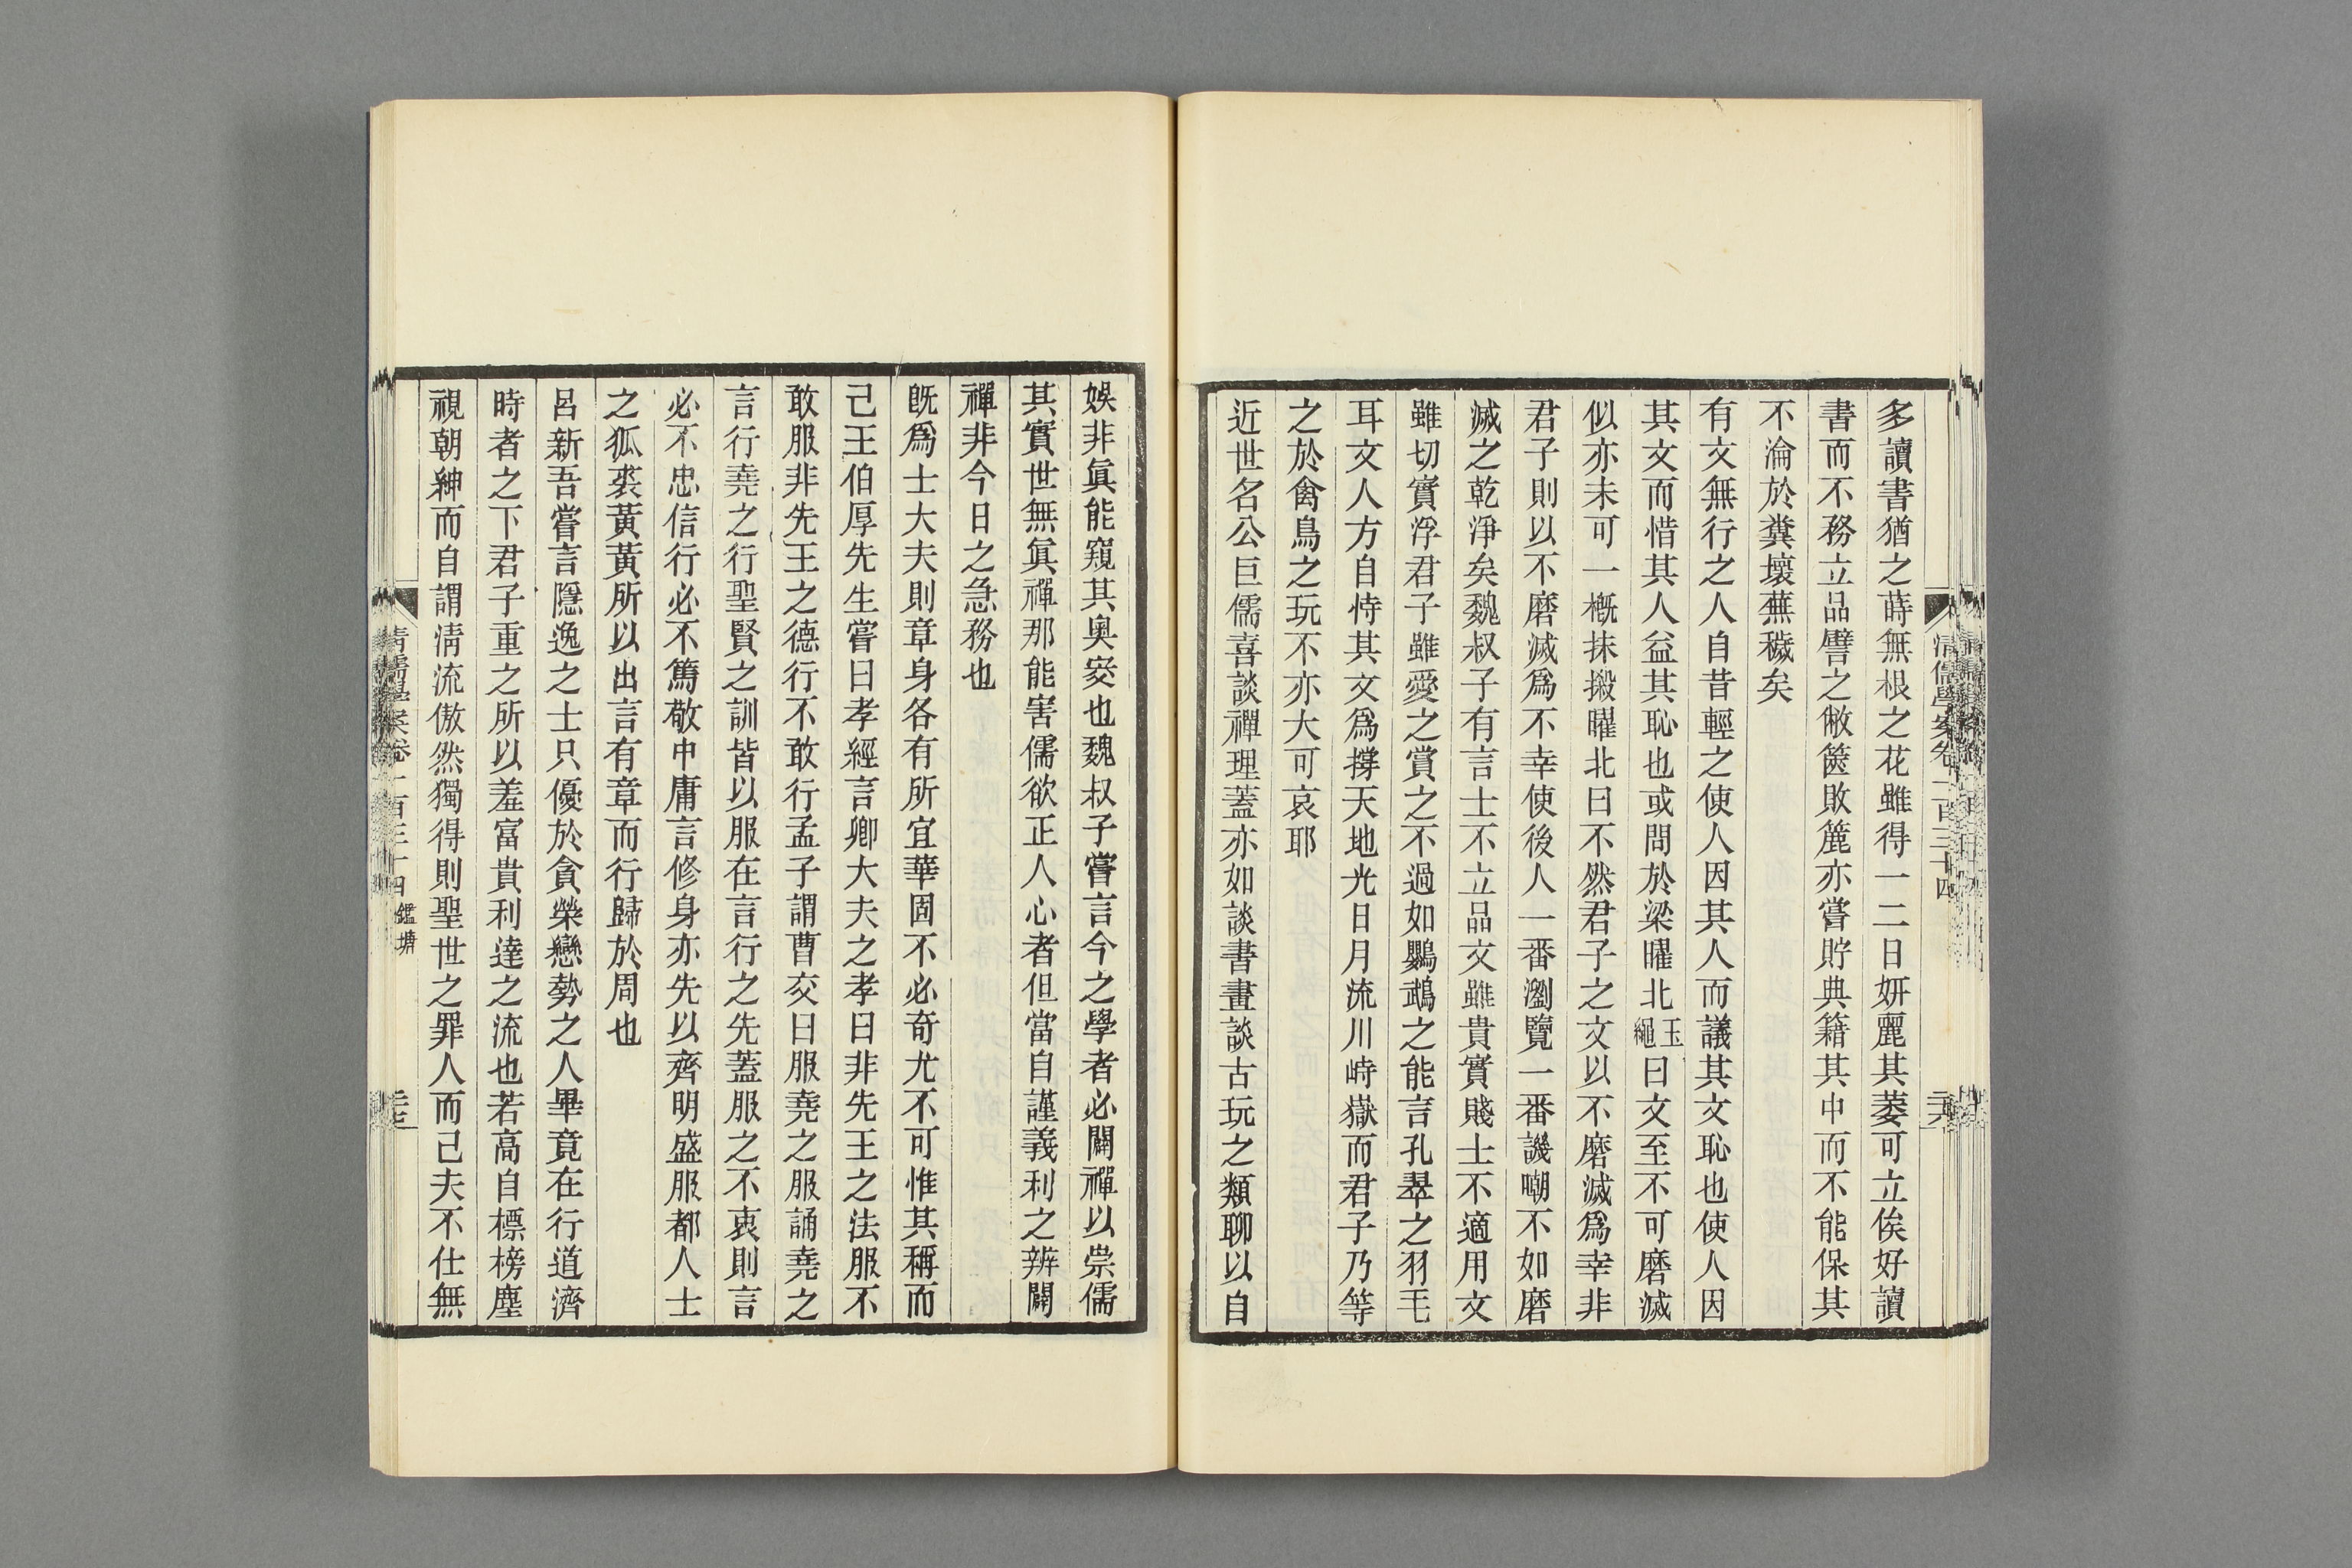 多讀書猶之蒔無根之花雖得一二日妍麗其萎可立俟好讀
書而不務立品譬之敝篋敗簏亦嘗貯典籍其中而不能保其
不淪於糞壤蕪穢矣
有文無行之人自昔輕之使人因其人而議其文恥也使人因
其文而惜其人益其恥也或問於梁曜北玉繩曰文至不可磨滅
似亦未可一概抹摋曜北曰不然君子之文以不磨滅爲幸非
君子則以不磨滅爲不幸使後人一番瀏覽一番譏嘲不如磨
滅之乾淨矣魏叔子有言士不立品文雖貴實賤士不適用文
雖切實浮君子雖愛之賞之不過如鸚鵡之能言孔翠之羽毛
耳文人方自恃其文爲撐天地光日月流川峙嶽而君子乃等
之於禽鳥之玩不亦大可哀耶
近世名公巨儒喜談禪理蓋亦如談書畫談古玩之類聊以自
清儒學案卷二百三十四
三六
娛非眞能窺其奥窔也魏叔子嘗言今之學者必闢禪以崇儒
其實世無眞禪那能害儒欲正人心者但當自謹義利之辨闢
禪非今日之急務也
旣爲士大夫則章身各有所宜華固不必奇尤不可惟其稱而
己王伯厚先生嘗曰孝經言卿大夫之孝曰非先王之法服不
敢服非先王之德行不敢行孟子謂曹交曰服堯之服誦堯之
言行堯之行聖賢之訓皆以服在言行之先蓋服之不衷則言
必不忠信行必不篤敬中庸言修身亦先以齊明盛服都人士
之狐裘黃黃所以出言有章而行歸於周也
呂新吾嘗言隱逸之士只優於貪榮戀勢之人畢竟在行道濟
時者之下君子重之所以羞富貴利達之流也若高自標榜塵
視朝紳而自謂淸流傲然獨得則聖世之罪人而己夫不仕無
清儒學案卷二百三十四 鑑塘
三七